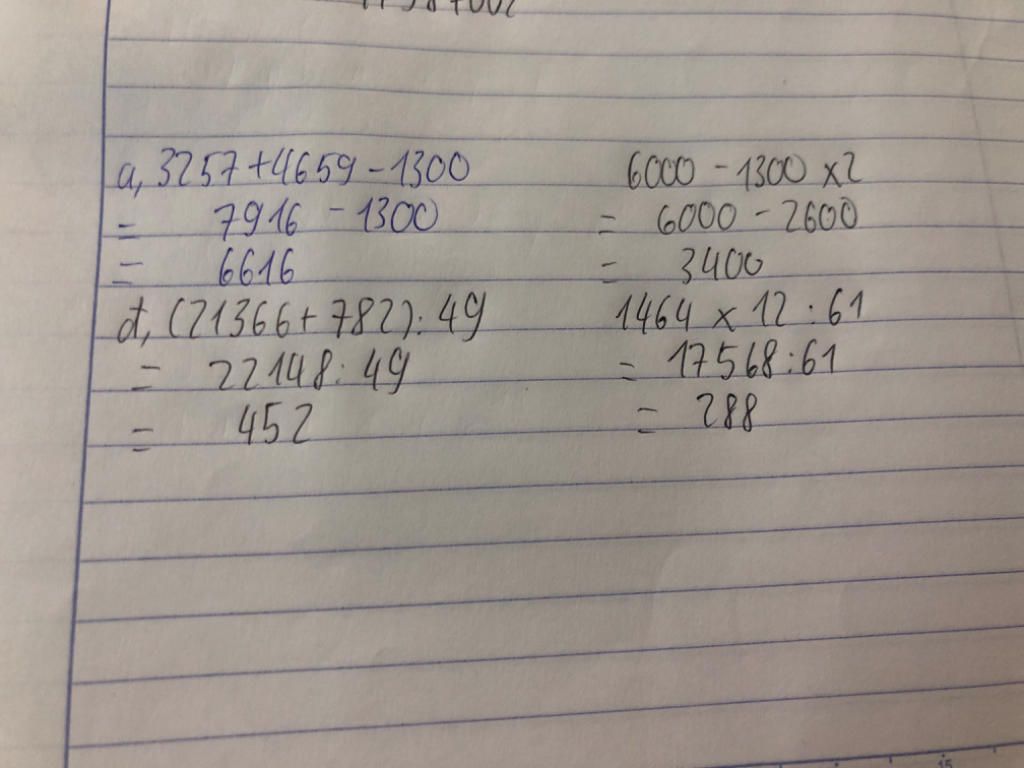 a, 3257 + 4659 - 1300
= 7916 - 1300
= 6616
6000 - 1300 x 2
= 6000 - 2600
= 3400
đ, (21366 + 782) : 49
= 22148 : 49
= 452
1464 x 12 : 61
= 17568 : 61
= 288
15